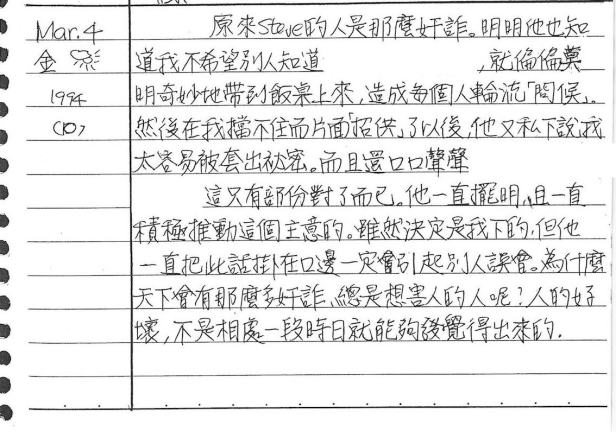 Mar. 4
金
1994
(10)
原來Steve的人是那麼奸詐。明明他也知
道我不希望別人知道 ,就偏偏莫
明奇妙地帶到飯桌上來,造成每個人輪流「問候」。
然後在我擋不住而片面「招供」了以後,他又私下說我
太容易被套出祕密。而且還口口聲聲
這只有部份對了而已。他一直擺明,且一直
積極推動這個主意的。雖然決定是我下的,但他
一直把此話掛在口邊一定會引起別人誤會。為什麼
天下會有那麼多奸詐、總是想害人的人呢?人的好
壞,不是相處一段時日就能夠發覺得出來的.